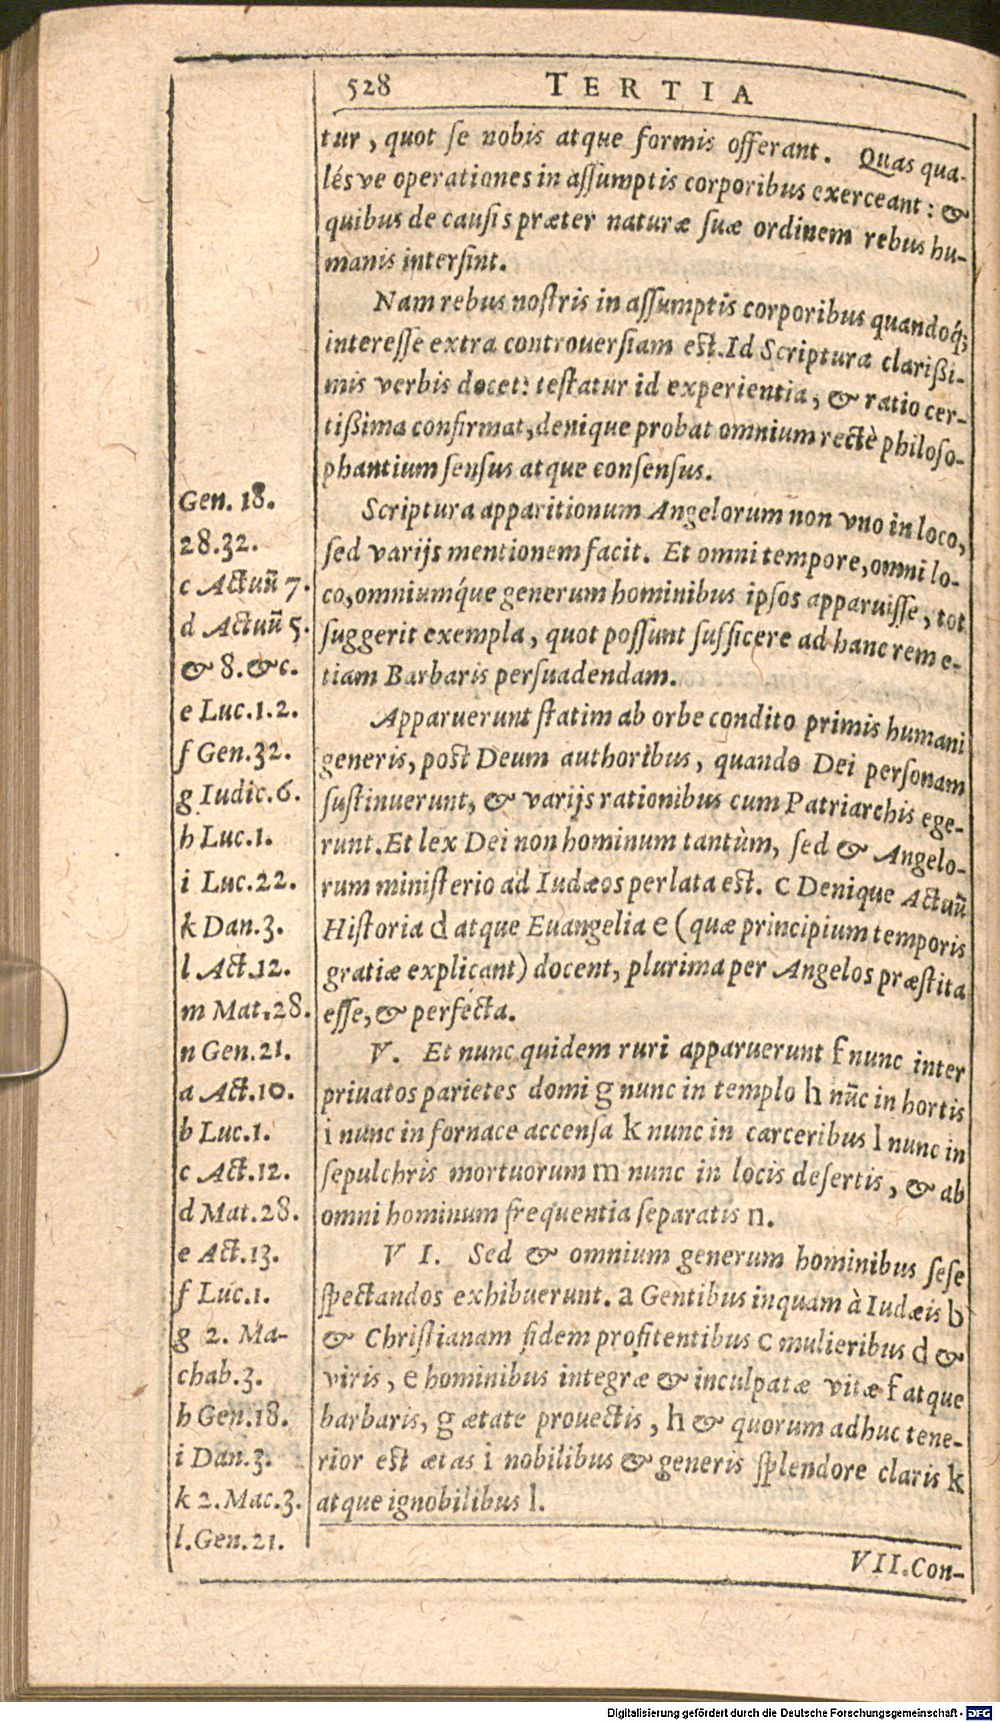 528 TERTIA
tur, quot se nobis atque formis offerant. Quas qua-
lésve operationes in assumptis corporibus exerceant: &
quibus de causis præter naturæ suæ ordinem rebus hu-
manis intersint.
Nam rebus nostris in assumptis corporibus quandoq́;
interesse extra controuersiam est. Id Scriptura clarißi-
mis verbis docet: testatur id experientia, & ratio cer-
tißima confirmat, denique probat omnium rectè philoso-
phantium sensus atque consensus.
Scriptura apparitionum Angelorum non vno in loco,
sed varijs mentionem facit. Et omni tempore, omni lo-
co, omniumq́ue generum hominibus ipsos apparuisse, tot
suggerit exempla, quot possunt sufficere ad hanc rem e-
tiam Barbaris persuadendam.
Apparuerunt statim ab orbe condito primis humani
generis, post Deum authoribus, quando Dei personam
sustinuerunt, & varijs rationibus cum Patriarchis ege-
runt. Et lex Dei non hominum tantùm, sed & Angelo-
rum ministerio ad Iudæos perlata est. c Denique Actuũ
Historia d atque Euangelia e (quæ principium temporis
gratiæ explicant) docent, plurima per Angelos præstita
esse, & perfecta.
V. Et nunc quidem ruri apparuerunt f nunc inter
priuatos parietes domi g nunc in templo h nũc in hortis
i nunc in fornace accensa k nunc in carceribus l nunc in
sepulchris mortuorum m nunc in locis desertis, & ab
omni hominum frequentia separatis n.
VI. Sed & omnium generum hominibus sese
spectandos exhibuerunt. a Gentibus inquam à Iudæis b
& Christianam fidem profitentibus c mulieribus d &
viris, e hominibus integræ & inculpatæ vitæ f atque
barbaris, g ætate prouectis, h & quorum adhuc tene-
rior est ætas i nobilibus & generis splendore claris k
atque ignobilibus l.
VII. Con-
Gen. 18.
28. 32.
c Actuũ 7.
d Actuũ 5.
& 8. &c.
e Luc. 1. 2.
f Gen. 32.
g Iudic. 6.
h Luc. 1.
i Luc. 22.
k Dan. 3.
l Act. 12.
m Mat. 28.
n Gen. 21.
a Act. 10.
b Luc. 1.
c Act. 12.
d Mat. 28.
e Act. 13.
f Luc. 1.
g 2. Ma-
chab. 3.
h Gen. 18.
i Dan. 3.
k 2. Mac. 3.
l. Gen. 21.
Digitalisierung gefördert durch die Deutsche Forschungsgemeinschaft - DFG